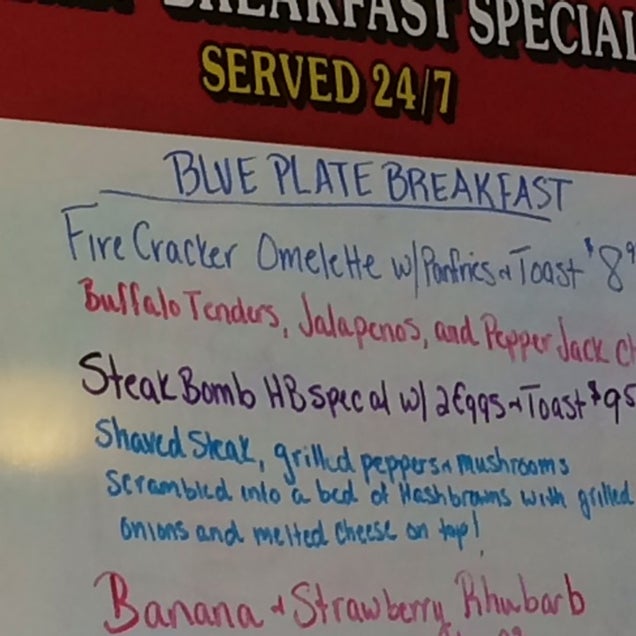 BREAKFAST SPECIAL
SERVED 24/7
BLUE PLATE BREAKFAST
Fire Cracker Omelette w/ Panfries & Toast $8
Buffalo Tenders, Jalapenos, and Pepper Jack
Steak Bomb HB Specal w/ 2 Eggs & Toast $95
Shaved Steak, grilled peppers & mushrooms
scrambled into a bed of Hashbrowns with grilled
onions and melted cheese on top!
Banana & Strawberry Rhubarb